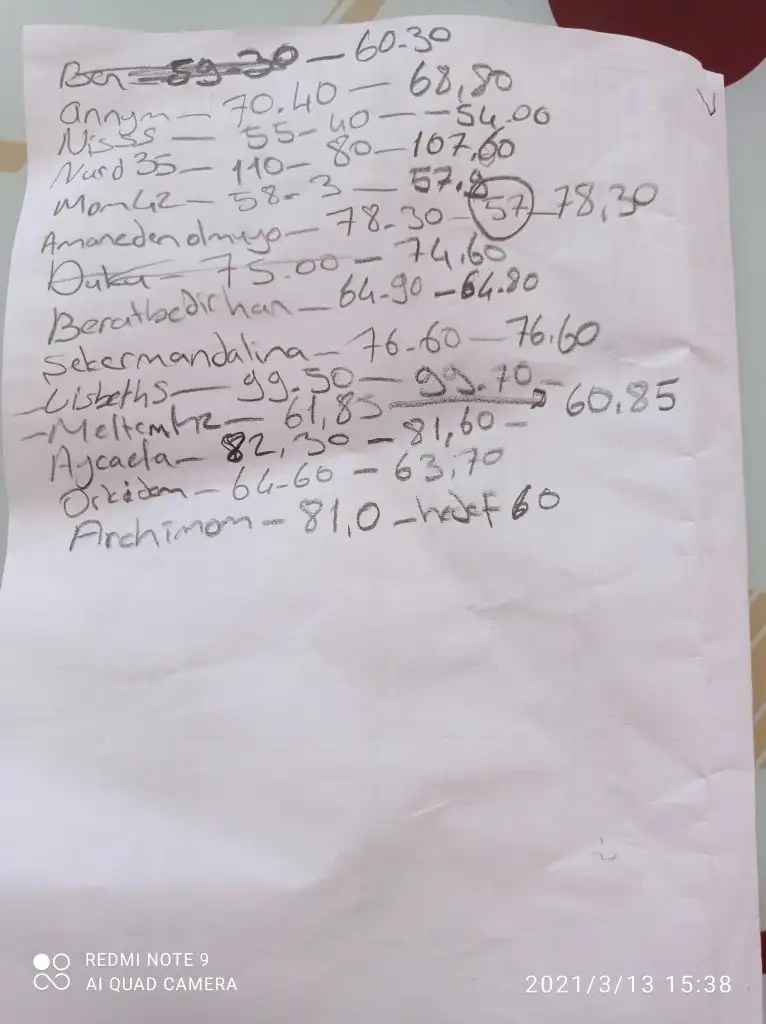 Ben - 59-30 - 60-30
annym - 70.40 - 68,80
Nisss - 55-40 - - 54.00
Nurd35 - 110-80 - 107,60
Mom42 - 58-3 - 57,8
Amanedenolmuyo - 78-30 - 57 - 78,30
75.00 - 74,60
Beratbedirhan - 64-90 - 64.80
Sekermandalina - 76-60 - 76.60
- LisbethS - 99-50 - 99.70 -
- Meltem42 - 61,85 60,85
Aycaela - 82,30 - 81,60 -
Orkidem - 64-60 - 63,70
Archimom - 81,0 - hedef 60
REDMI NOTE 9
AI QUAD CAMERA
2021/3/13 15:38